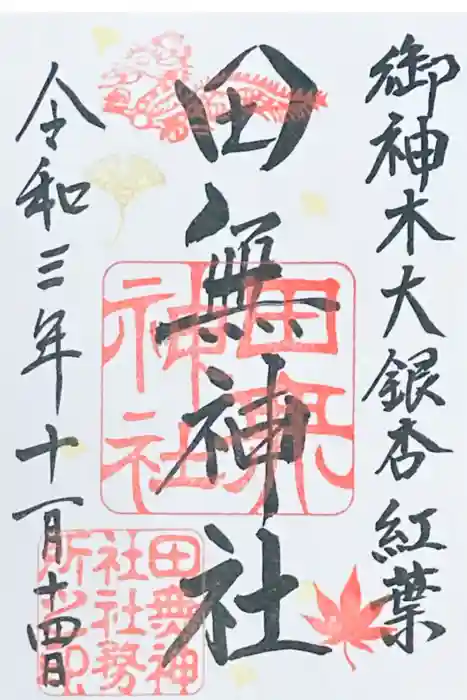 御神木大銀杏紅葉
田無神社
田無神社
令和三年十一月十四日
田無神
社社務
所之印